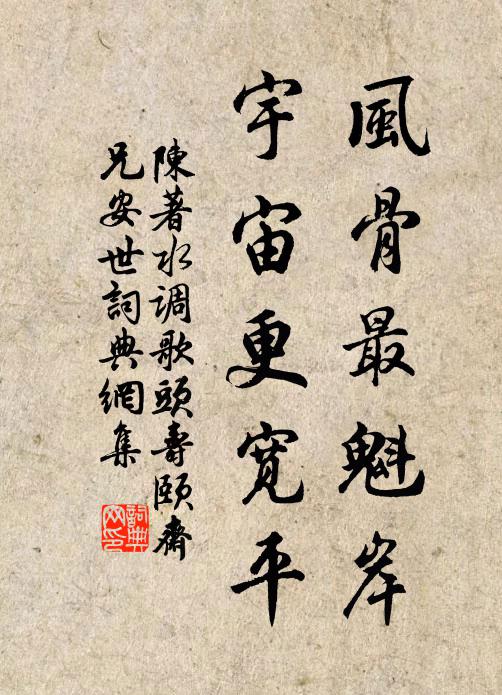 風骨最魁岸
宇宙更寬平
陳著水调歌頭壽頤齋
兄安世詞典網集
詞典
网印